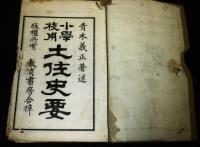 青木義正著述
小學校用
土佐史要
版權所有
教済書房合梓